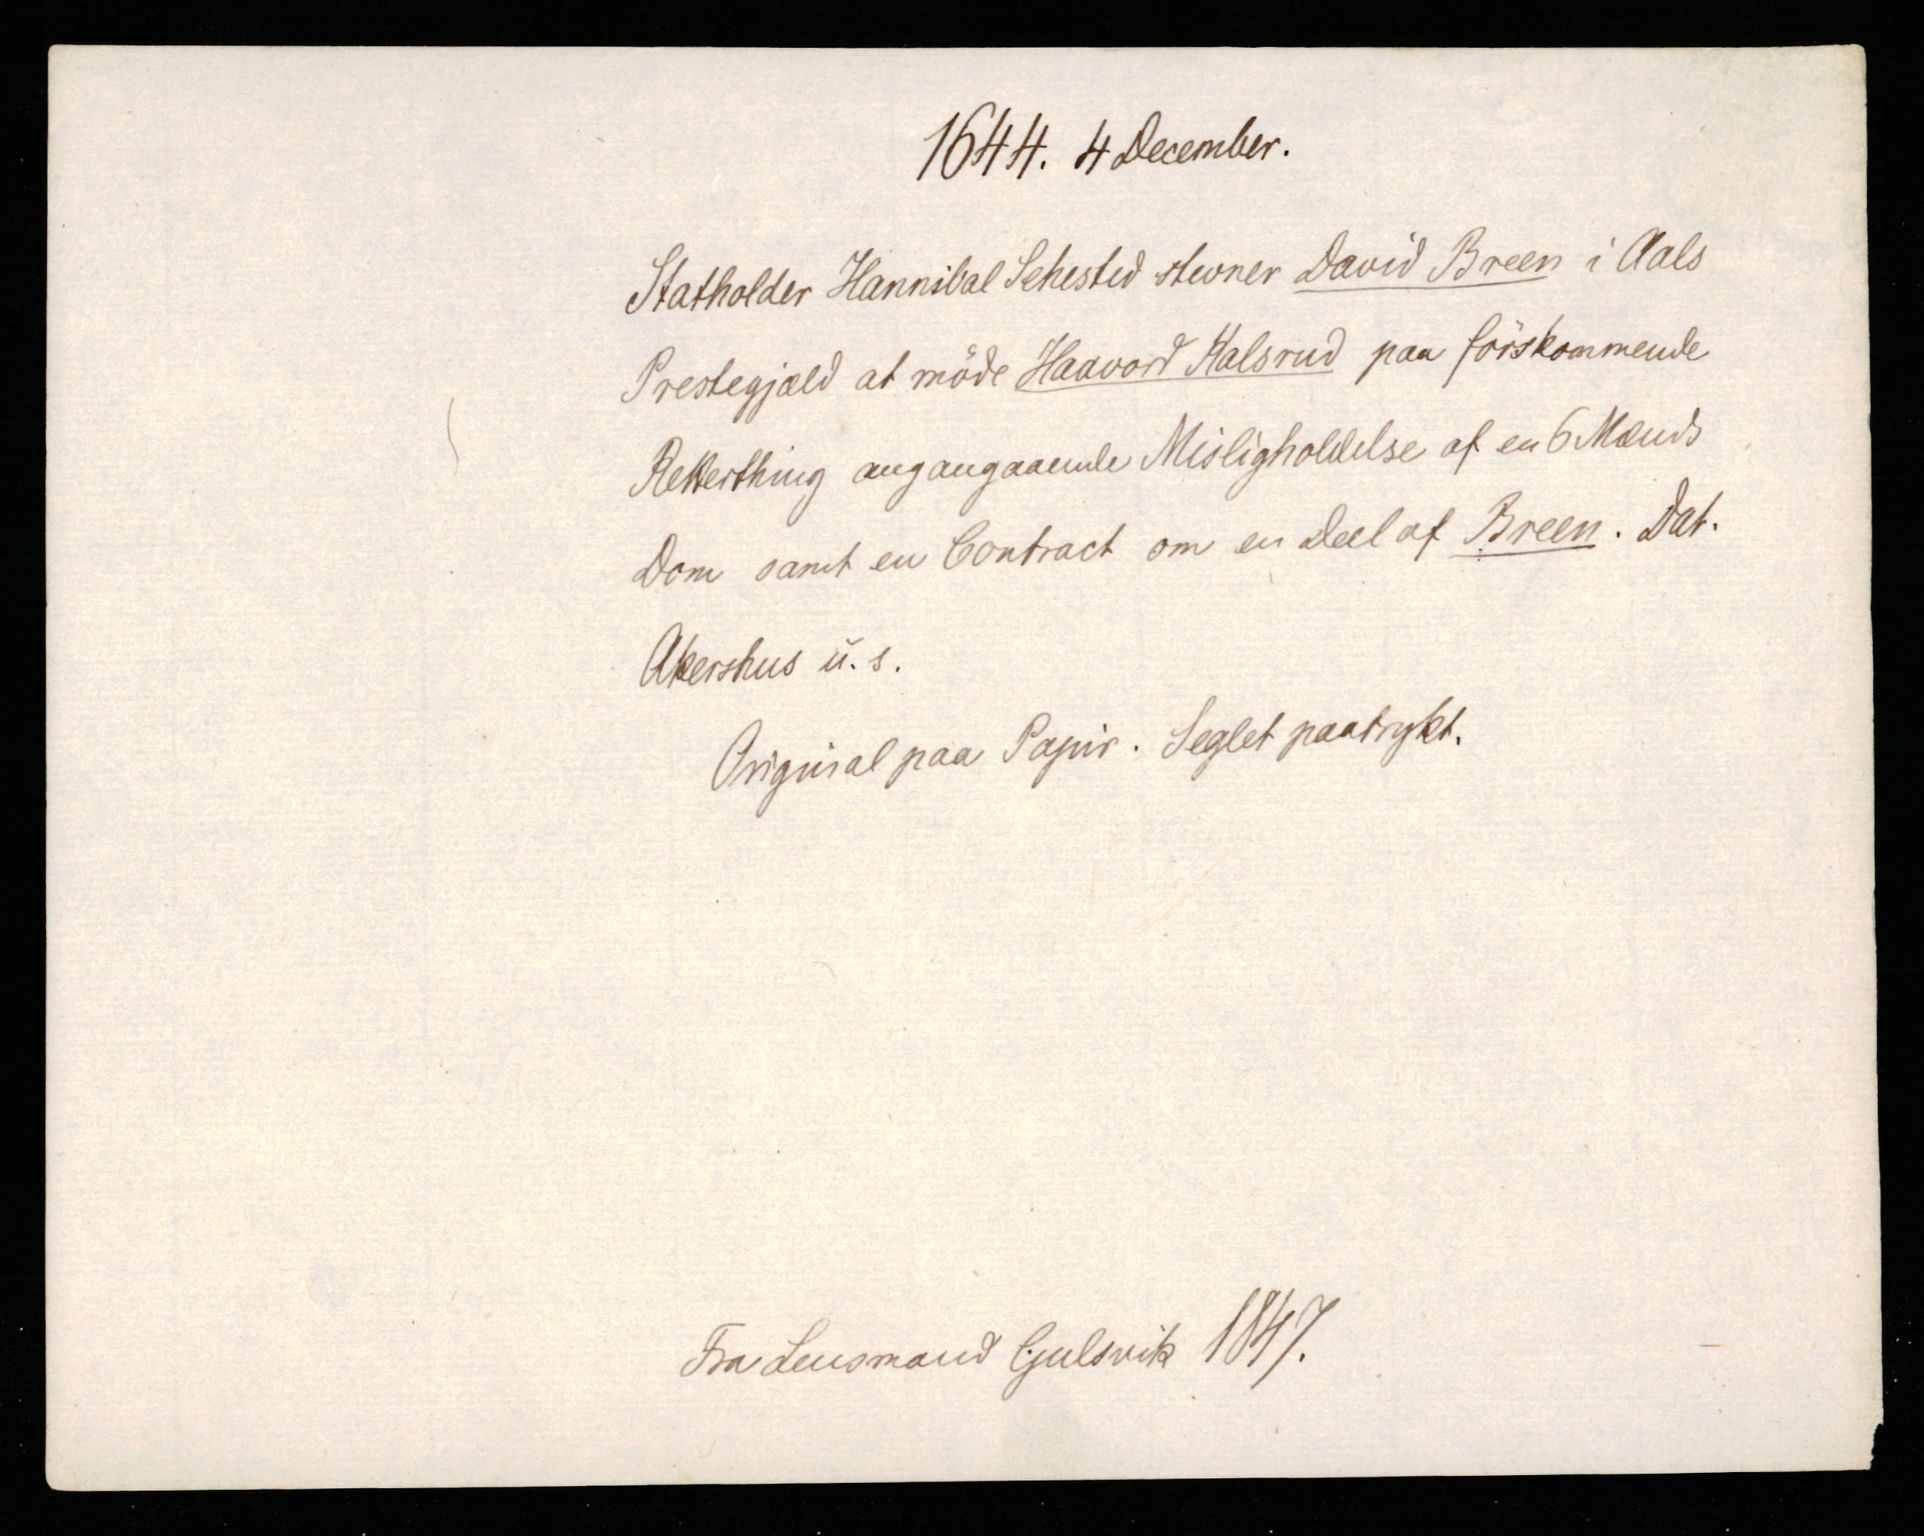 1644. 4 December.
Statholder Hannibal Sehested stevner David Breen i Aals
Prestegjæld at möde Haavord Kalsrud paa förskommende
Retterthing angangaaende Misligholdelse af en 6 Mænds
Dom samt en Contract om en Deel af Breen. Dat.
Akershus u. s.
Original paa Papir. Seglet paatrykt.
Fra Lensmand Gulsvik 1847.